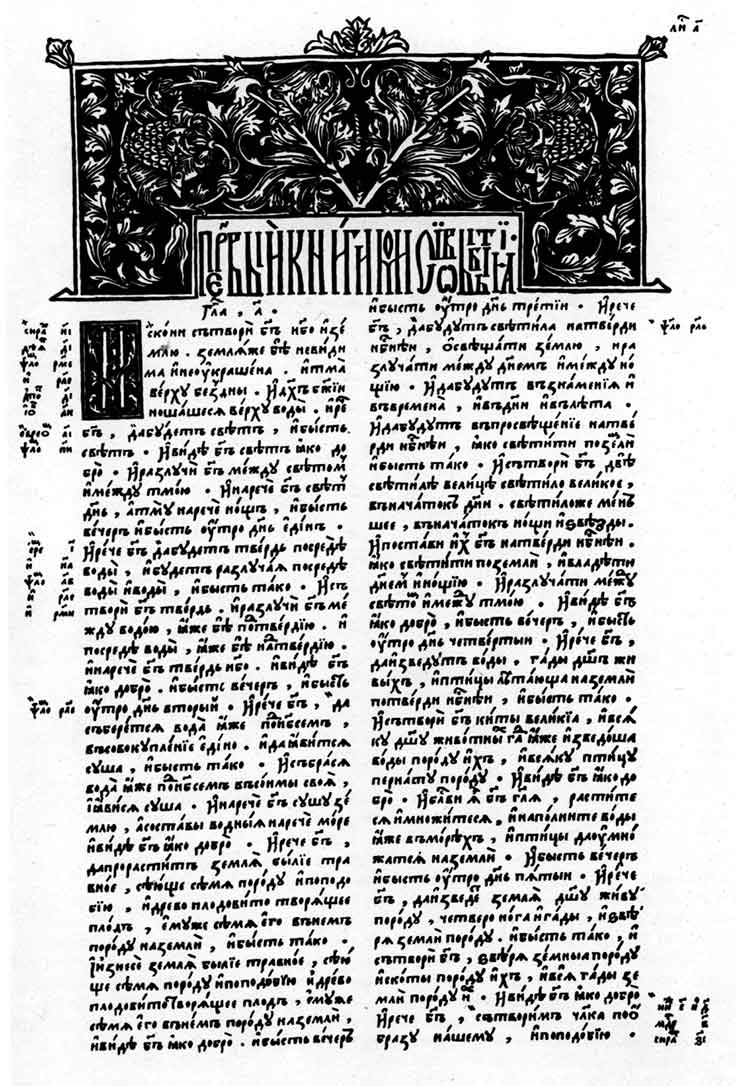 ли҃ а҃
Пе́рвыи кни́ги мо̑и̑сѡ́ви бытїѐ
Гла̀, а҃ ·
Искони сътвори бг҃ъ нб҃о и҆зе
млю . земля́же бѣ̀ невѝди
ма и҆неоу҆кра́шена . и҆тма̀
ве́рху бе́здны . И҆дх҃ъ бж҃їи
ноша́шеся ве́рху воды̀ . и҆ре́ч
бг҃ъ , да́бꙋдетъ свѣ́тъ , и҆бы́сть
свѣ́тъ . И҆ви́дѣ бг҃ъ свѣ́тъ ꙗ҆́ко до
бро̀ . И҆разлꙋчѝ бг҃ъ ме́жду свѣ́томъ
и҆ме́жду тмо́ю . И҆наречѐ бг҃ъ свѣ́тъ
дн҃ь , а҆тмꙋ̀ наречѐ но́щъ , и҆бы́сть
ве́черъ и҆бы́сть оу҆́тро дн҃ь е҆ди́нъ .
И҆речѐ бг҃ъ да́бꙋдетъ тве́рдь посредѣ̀
воды̀ , и҆бꙋ́детъ разлꙋча́я посредѣ̀
воды̀ и҆воды̀ , и҆бы́сть та́ко . И҆сът
творѝ бг҃ъ тве́рдь . и҆разлꙋчѝ бг҃ъ ме́
ждꙋ водо́ю , ꙗ҆́же бѣ̀ под тве́рдїю . и҆
посредѣ̀ воды̀ , ꙗ҆́же бѣ̀ над тве́рдїю .
И҆наречѐ бг҃ъ тве́рдь нб҃о . и҆ви́дѣ бг҃ъ
ꙗ҆́ко добро̀ . и҆бы́сть ве́черъ , и҆бы́сть
оу҆́тро дн҃ь вторы́й . И҆речѐ бг҃ъ , да
събере́тся вода̀ ꙗ҆́же под нб҃семъ ,
въсовокꙋпле́нїе е҆ди́но . и҆да ꙗ҆ви́тся
сꙋ́ша , и҆бы́сть та́ко . И҆събра́ся
вода̀ ꙗ҆́же под нб҃семъ въсо́нмы своя̀ ,
и҆ꙗ҆ви́ся сꙋ́ша . И҆наречѐ бг҃ъ сꙋ́шꙋ зе́
млю , а҆соста́вы во́дныя наречѐ мо́ре
и҆ви́дѣ бг҃ъ ꙗ҆́ко добро̀ . И҆речѐ бг҃ъ ,
да прорасти́тъ земля̀ бы́лїе тра
вно́е , сѣ́ющее сѣ́мя по ро́дꙋ и҆ по подо
бїю , и҆дре́во плодови́то творя́щее
пло́дъ , е҆мꙋ́же сѣ́мя е҆го̀ в не́мъ
по ро́дꙋ на землѝ , и҆бы́сть та́ко .
И҆ и҆знесѐ земля̀ бы́лїе травно́е , сѣ́ю
ще сѣ́мя по ро́дꙋ и҆ по подо́бїю и҆ дре́во
плодови́то творя́щее пло́дъ , е҆мꙋ́же
сѣ́мя е҆го̀ в не́мъ по ро́дꙋ на землѝ ,
и҆ви́дѣ бг҃ъ ꙗ҆́ко добро̀ . и҆бы́сть ве́черъ
и҆бы́сть оу҆́тро дн҃ь тре́тїи . И҆речѐ
бг҃ъ , да́бꙋдꙋтъ свѣти́ла на тве́рди
нб҃снѣй , ѡ҆свѣща́ти зе́млю , и҆ра
злꙋча́ти ме́ждꙋ дне́мъ и҆ме́ждꙋ но́
щїю . И҆да́бꙋдꙋтъ въ зна́менїя и҆
въ времена̀ , и҆въ дни и҆въ лѣ́та .
И҆да́бꙋдꙋтъ въ просвѣще́нїе на тве́
рди нб҃снѣй , ꙗ҆́ко свѣти́ти по землѝ
и҆бы́сть та́ко . И҆сътворѝ бг҃ъ двѣ̀
свѣти́лѣ вели́цѣ свѣти́ло вели́кое ,
в нача́токъ дни̑ . свѣти́ло же ме́нь
шее , в нача́токъ но́щи и҆ ѕвѣ́зды .
И҆поста́ви и҆́хъ бг҃ъ на тве́рди нб҃снѣй .
ꙗ҆́ко свѣти́ти по землѝ , и҆владѣ́ти
дне́мъ и҆но́щїю . И҆разлꙋча́ти ме́ждꙋ
свѣ́томъ и҆ме́ждꙋ тмо́ю . И҆ви́дѣ бг҃ъ
ꙗ҆́ко добро̀ , и҆бы́сть ве́черъ , и҆бы́сть
оу҆́тро дн҃ь четве́ртыи . И҆речѐ бг҃ъ ,
да и҆зведꙋ́тъ во́ды , га́ды дш҃ъ жи
вы́хъ , и҆пти́цы лѣта́юща на землѝ
по тве́рди нб҃снѣй , и҆бы́сть та́ко .
И҆сътворѝ бг҃ъ ки́ты вели́кїа , и҆вся́
кꙋ дш҃ꙋ живо́тныхъ га̑д ꙗ҆́же и҆зведо́ша
во́ды по ро́дꙋ и҆́хъ , и҆вся́кꙋ пти́цꙋ
перна́тꙋ по ро́дꙋ . И҆ви́дѣ бг҃ъ ꙗ҆́ко до
бро̀ . И҆блг҃ви ꙗ҆̀ бг҃ъ гл҃я , расти́те
ся и҆мно́житеся , и҆напо́лните во́ды
ꙗ҆́же въ мо́рѣхъ , и҆пти́цы да оу҆мно́
жатся на землѝ . И҆бы́сть ве́черъ
и҆бы́сть оу҆́тро дн҃ь пя́тыи . И҆речѐ
бг҃ъ , да и҆зведе́ земля̀ дш҃ꙋ жи́вꙋ
по ро́дꙋ , четверо но́га и҆га́ды , и҆ѕвѣ́
ря землѝ по ро́дꙋ . и҆бы́сть та́ко , и҆
сътворѝ бг҃ъ , ѕвѣ́ря земны́а по ро́дꙋ
и҆ско́ты по ро́дꙋ и҆́хъ , и҆вся̀ га́ды зе
млѝ по ро́дꙋ и҆́х . И҆ви́дѣ бг҃ъ ꙗ҆́ко добро̀
И҆речѐ бг҃ъ , сътвори́мъ чл҃ка по ѡ́
бразꙋ на́шемꙋ , и҆ по подо́бїю .